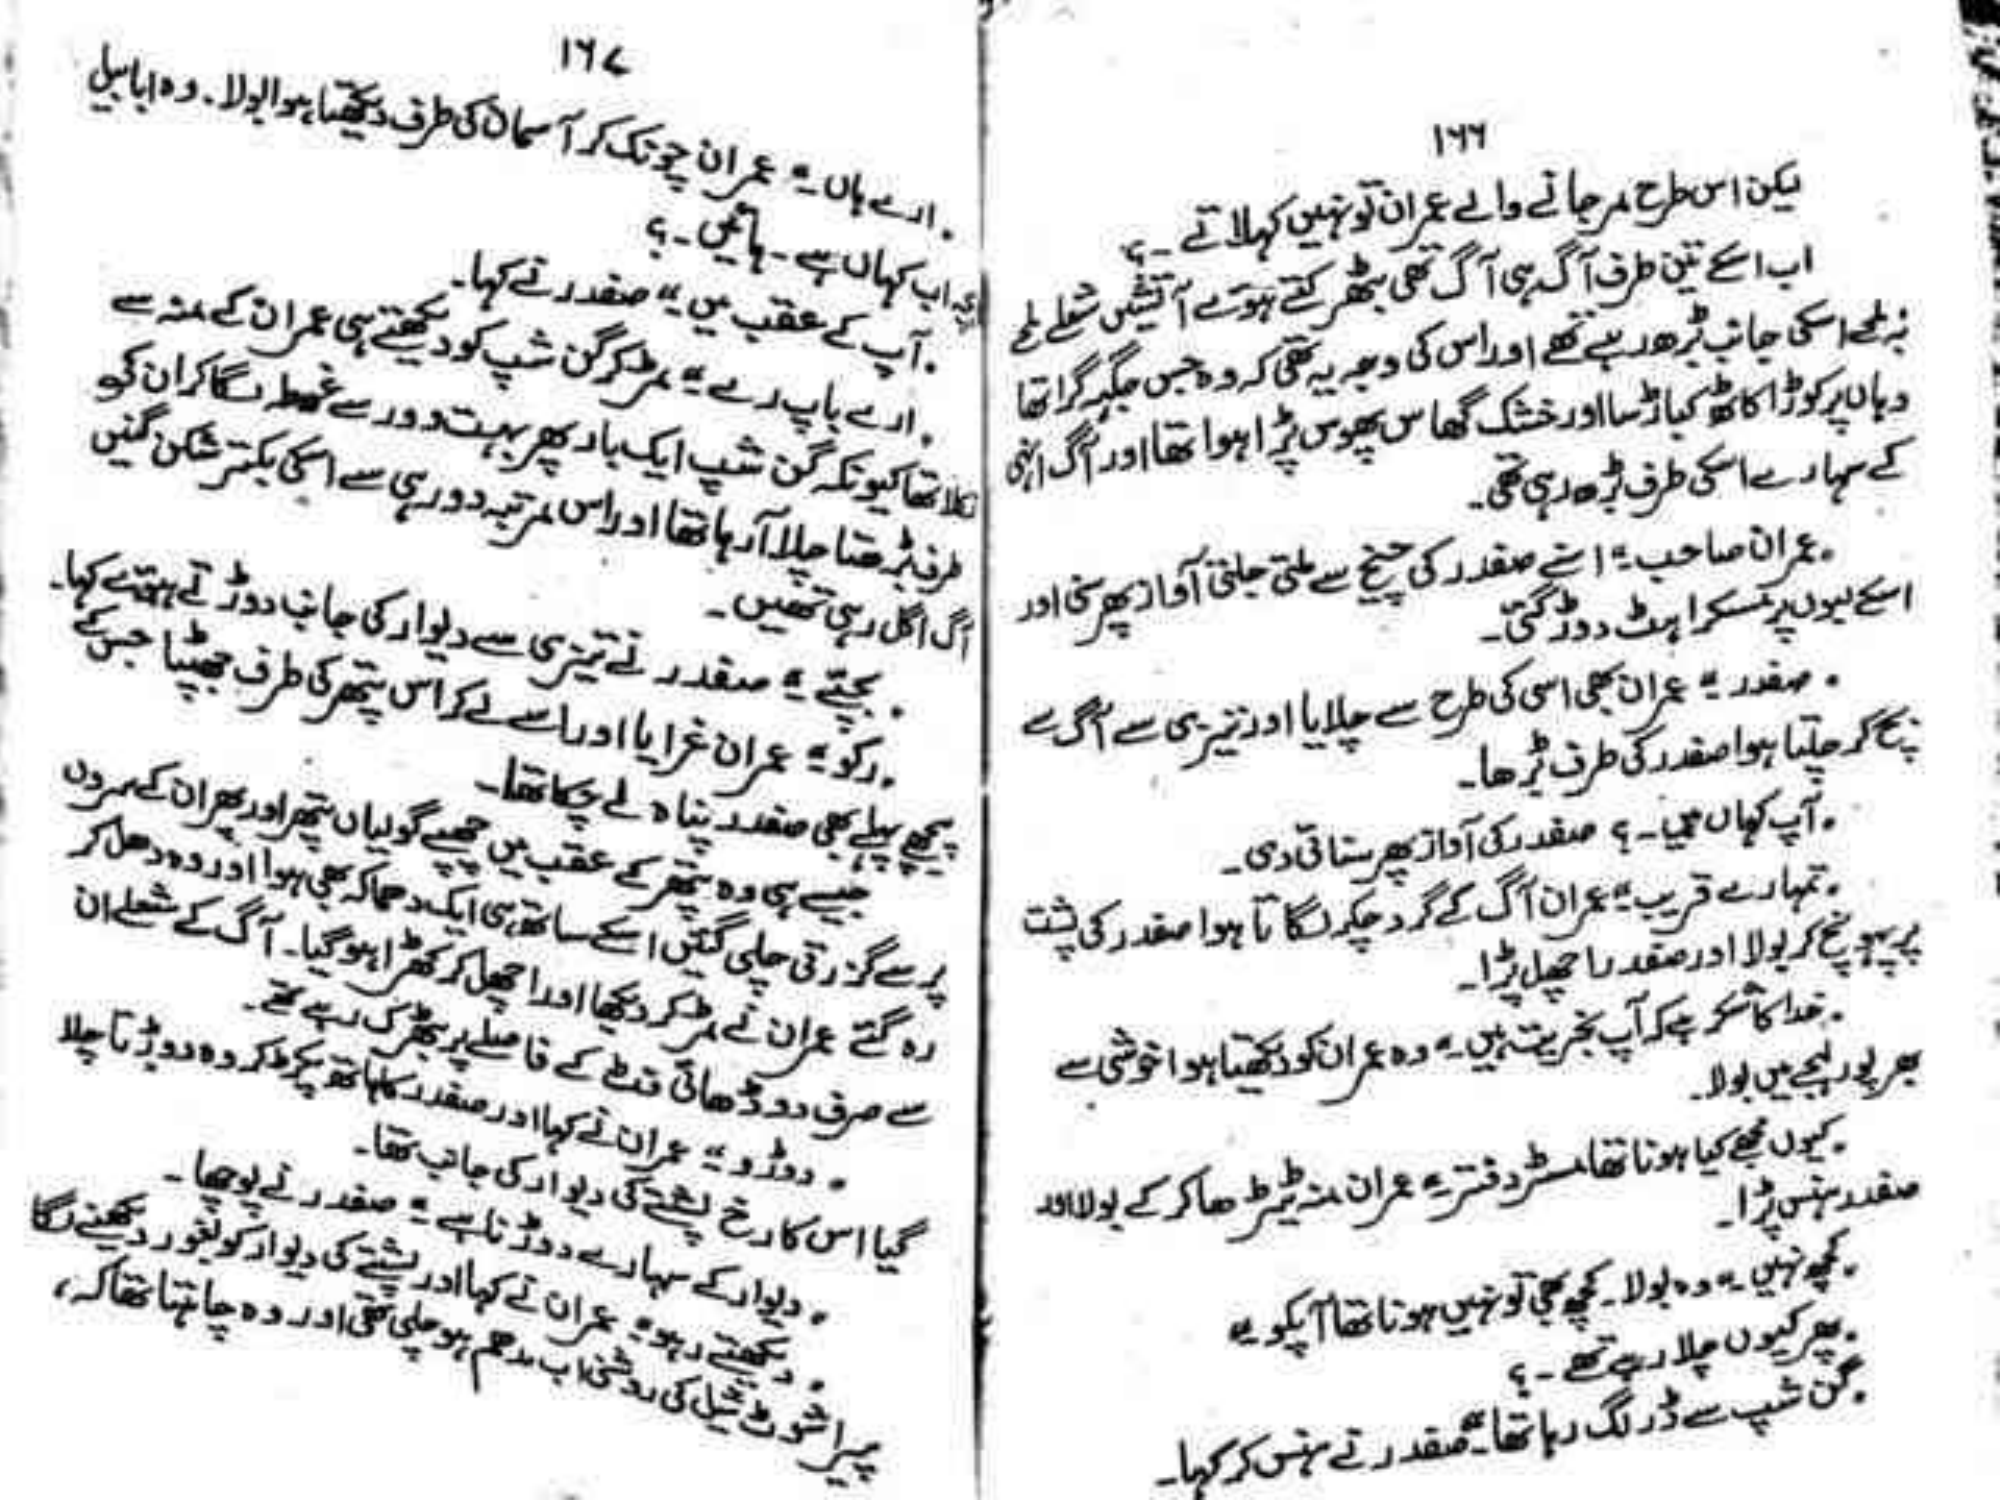 ۱۶۶
لیکن اس طرح مر جانے والے عمران تو نہیں کہلاتے ۔ ؟
اب اسکے تین طرف آگ ہی آگ تھی بھڑکتے ہوئے آتشیں شعلے لمحے
بہ لمحے اسکی جانب بڑھ رہے تھے اور اس کی وجہ یہ تھی کہ وہ جس جگہ گرا تھا
وہاں پر کوڑا کاٹھ کباڑ سا اور خشک گھاس پھوس پڑا ہوا تھا اور آگ انہی
کے سہارے اسکی طرف بڑھ رہی تھی۔
۔عمران صاحب ۔" اسنے صفدر کی چیخ سے ملتی جلتی آواز پھر سنی اور
اسکے لبوں پر مسکراہٹ دوڑ گئی۔
۔ صفدر ۔" عمران بھی اسی کی طرح سے چلایا اور تیزی سے آگ سے
بچ کر چلتا ہوا صفدر کی طرف بڑھا۔
۔آپ کہاں ہیں ۔؟ صفدر کی آواز پھر سنائی دی۔
۔تمہارے قریب ۔" عمران آگ کے گرد چکر لگاتا ہوا صفدر کی پشت
پر پہونچ کر بولا اور صفدر اچھل پڑا۔
۔خدا کا شکر ہے کہ آپ بخریت ہیں ۔" وہ عمران کو دیکھتا ہوا خوشی سے
بھر پور لہجے میں بولا۔
۔کیوں مجھے کیا ہونا تھا مسٹر دفتر ۔" عمران منہ ٹیڑھا کر کے بولا اور
صفدر ہنس پڑا۔
۔کچھ نہیں ۔" وہ بولا ۔ کچھ بھی تو نہیں ہونا تھا آپکو ۔"
۔پھر کیوں چلا رہے تھے ۔ ؟
۔گن شپ سے ڈر لگ رہا تھا ۔" صفدر نے ہنس کر کہا۔
۱۶۷
۔ ارے ہاں ۔" عمران چونک کر آسمان کی طرف دیکھتا ہوا بولا ۔ وہ ابابیل
اب کہاں ہے ۔ ہائیں ۔ ؟
۔آپ کے عقب میں ۔" صفدر نے کہا۔
۔ ارے باپ رے ۔" مڑ کر گن شپ کو دیکھتے ہی عمران کے منہ سے
نکلا تھا کیونکہ گن شپ ایک بار پھر بہت دور سے غوطہ لگا کر ان کو
طرف بڑھتا چلا آ رہا تھا اور اس مرتبہ دور ہی سے اسکی بکتر شکن گنیں
آگ اگل رہی تھیں ۔
۔ بچئے ۔" صفدر نے تیزی سے دیوار کی جانب دوڑتے ہوئے کہا۔
۔رکو ۔" عمران غرایا اور اسے لے کر اس پتھر کی طرف جھپٹا جس کے
پیچھے پہلے بھی صفدر پناہ لے چکا تھا ۔
جیسے ہی وہ پتھر کے عقب میں چھپے گولیاں پتھر اور پھر ان کے سروں
پر سے گزرتی چلی گئیں اسکے ساتھ ہی ایک دھماکہ بھی ہوا اور وہ دھل کر
رہ گئے عمران نے مڑ کر دیکھا اور اچھل کر کھڑا ہو گیا۔ آگ کے شعلے ان
سے صرف دو ڈھائی فٹ کے فاصلے پر بھڑک رہے تھے۔
۔ دوڑو ۔" عمران نے کہا اور صفدر کا ہاتھ پکڑ کر وہ دوڑتا چلا
گیا اس کا رخ پشتے کی دیوار کی جانب تھا۔
۔ دیوار کے سہارے دوڑنا ہے ۔" صفدر نے پوچھا ۔
۔ دیکھتے رہو ۔" عمران نے کہا اور پشتے کی دیوار کو بغور دیکھنے لگا
پیراشوٹ شیل کی روشنی اب مدھم ہو چلی تھی اور وہ چاہتا تھا کہ ،